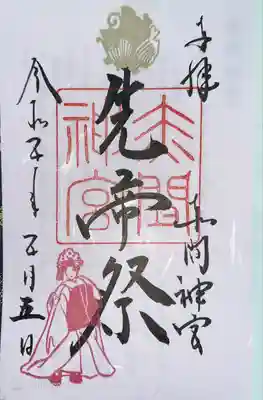 奉拝
赤間神宮
先帝祭
赤間
神宮
令和五年五月五日